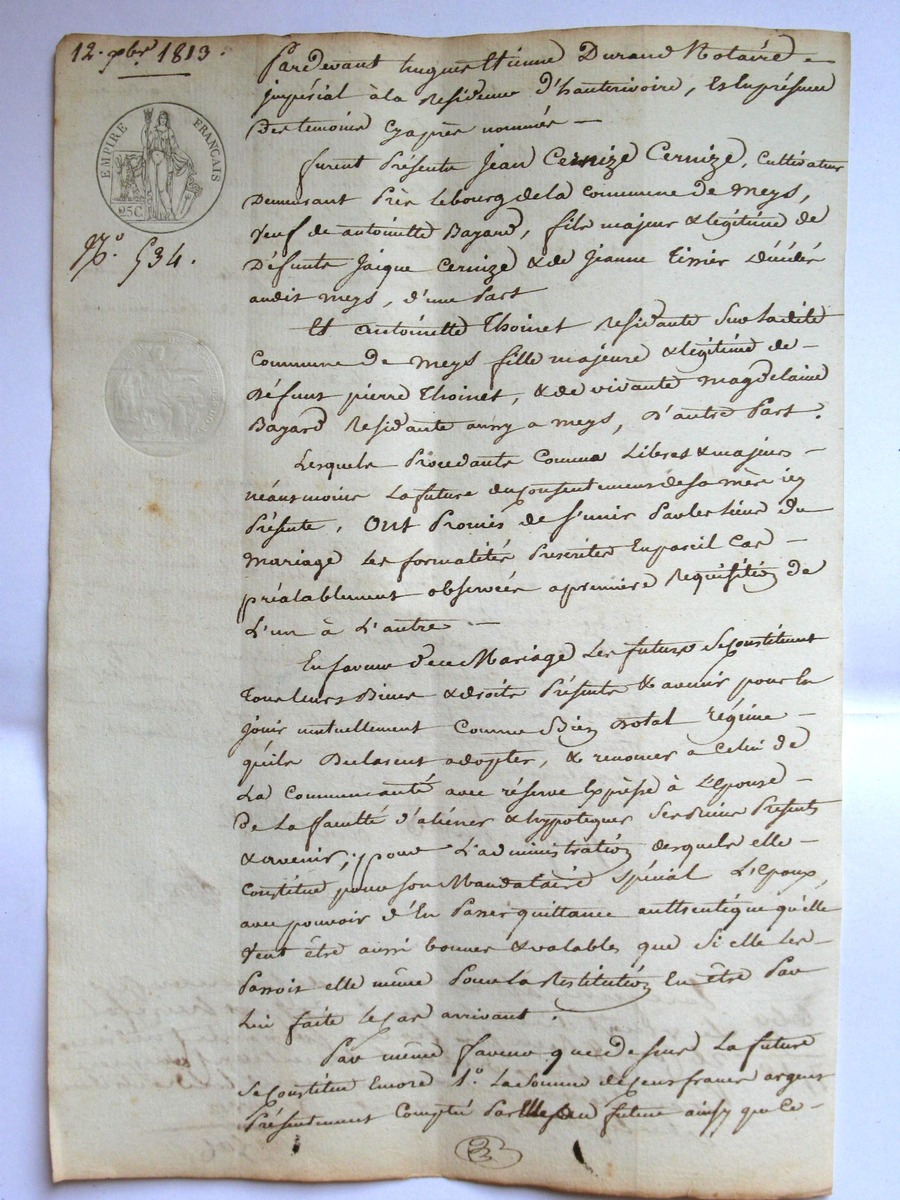 12. xbr. 1813.
EMPIRE FRANÇAIS
25C
N.° 534.
Pardevant hugues Etienne Durand Notaire
impérial à la residence d'hauterivoire, & en présence
Des temoins Cyaprès nommés —
furent Présents Jean Cernize Cernize, Cultivateur
Demeurant Près Lebourg de la Commune de Meys,
veuf de antoinette Bayard, fils majeur & legitime de
Défunts Jaique Cernize & de Jeanne décédés
audit meys, d'une Part
Et antoinette Thoinet Residante Sur Ladite
Commune De Meys fille majeure & legitime de
Défunt pierre Thoinet, & de vivante Magdelaine
Bayard Residante aussy a meys, D'autre Part.
Lesquels Procedants Comme Libres & majeurs
néansmoins La future du Consentement de Sa mère icy
Présente, Ont Promis de S'unir Par les liens du
Mariage Les formalités Prescrites En pareil Cas —
préalablement observées a premiere Requisition de
L'un à L'autre —
En faveur de ce Mariage Les futurs Se Constituent
Tous leurs Biens & droits Présents & avenir pour en
jouir mutuellement Comme Bien Dotal régime —
qu'ils Declarent adopter, & renoncer à Celui de
La Communauté avec réserve Expresse à L'Epouse
De La faculté d'aliéner & hypotequer Ses Biens Présents
& avenir, pour L'administration desquels elle —
Constitue pour Son Mandataire Spécial L'Epoux,
avec pouvoir d'En Passer quittance authentique qu'elle
veut être aussi bonnes & valables que Si elle Les
Passoit elle même Pour La Restitution En être Par
Lui faite le Cas arrivant.
Par même faveur que dessus La future
Se Constitue Encore 1.° La Somme de Cens francs argent
Présentement Compté Par Elle au futur ainsy que Ce —